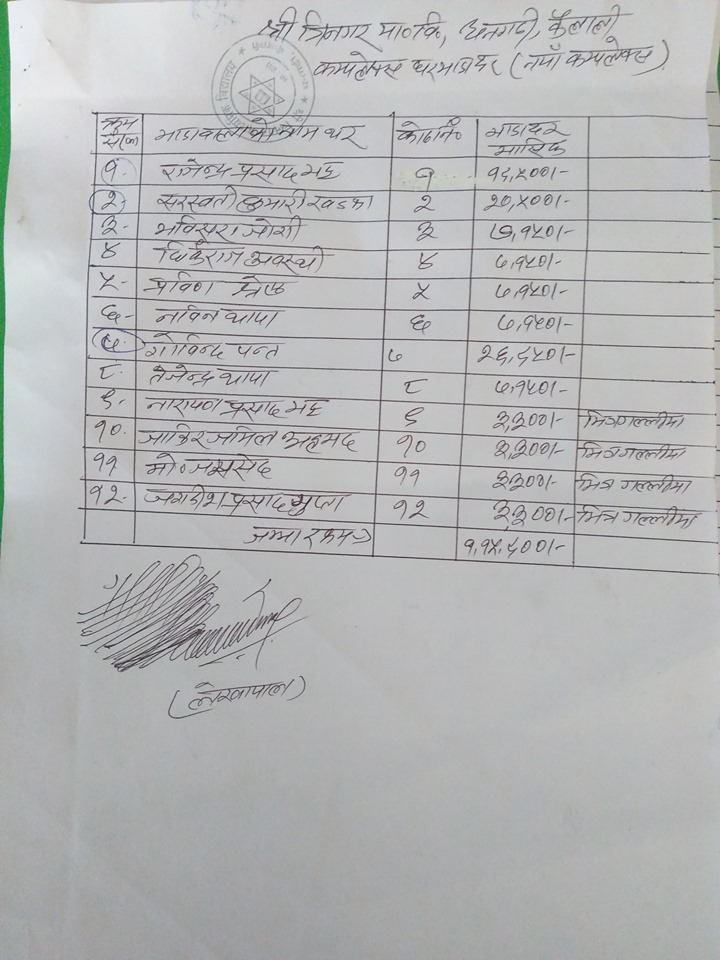 श्री त्रिनगर मा०वि, धनगढी, कैलाली
कम्पलेक्स घरभाडादर (नयाँ कम्पलेक्स)
क्रम भाडावालाको नाम थर कोठानं० भाडादर मासिक
१. राजेन्द्र प्रसाद भट्ट १ १६,५००।-
२. सरस्वती कुमारी खडका २ २०,५००।-
३. जोशी ३ ७,१५०।-
४ अवस्थी ४ ७,१५०।-
५. प्रविण ५ ७,१५०।-
६. नविन थापा ६ ७,१५०।-
७. गोविन्द पन्त ७ २६,६५०।-
८. तेजेन्द्र थापा ८ ७,१५०।-
९. नारायण प्रसाद भट्ट ९ ३,३००।- भित्रगल्लीमा
१०. जाकिर जमिल अहमद १० ३,३००।- भित्रगल्लीमा
११ मो० जमसेद ११ ३,३००।- भित्र गल्लीमा
१२. जगदिश प्रसाद गुप्ता १२ ३,३००।- भित्र गल्लीमा
जम्मा रकम
(लेखापाल)